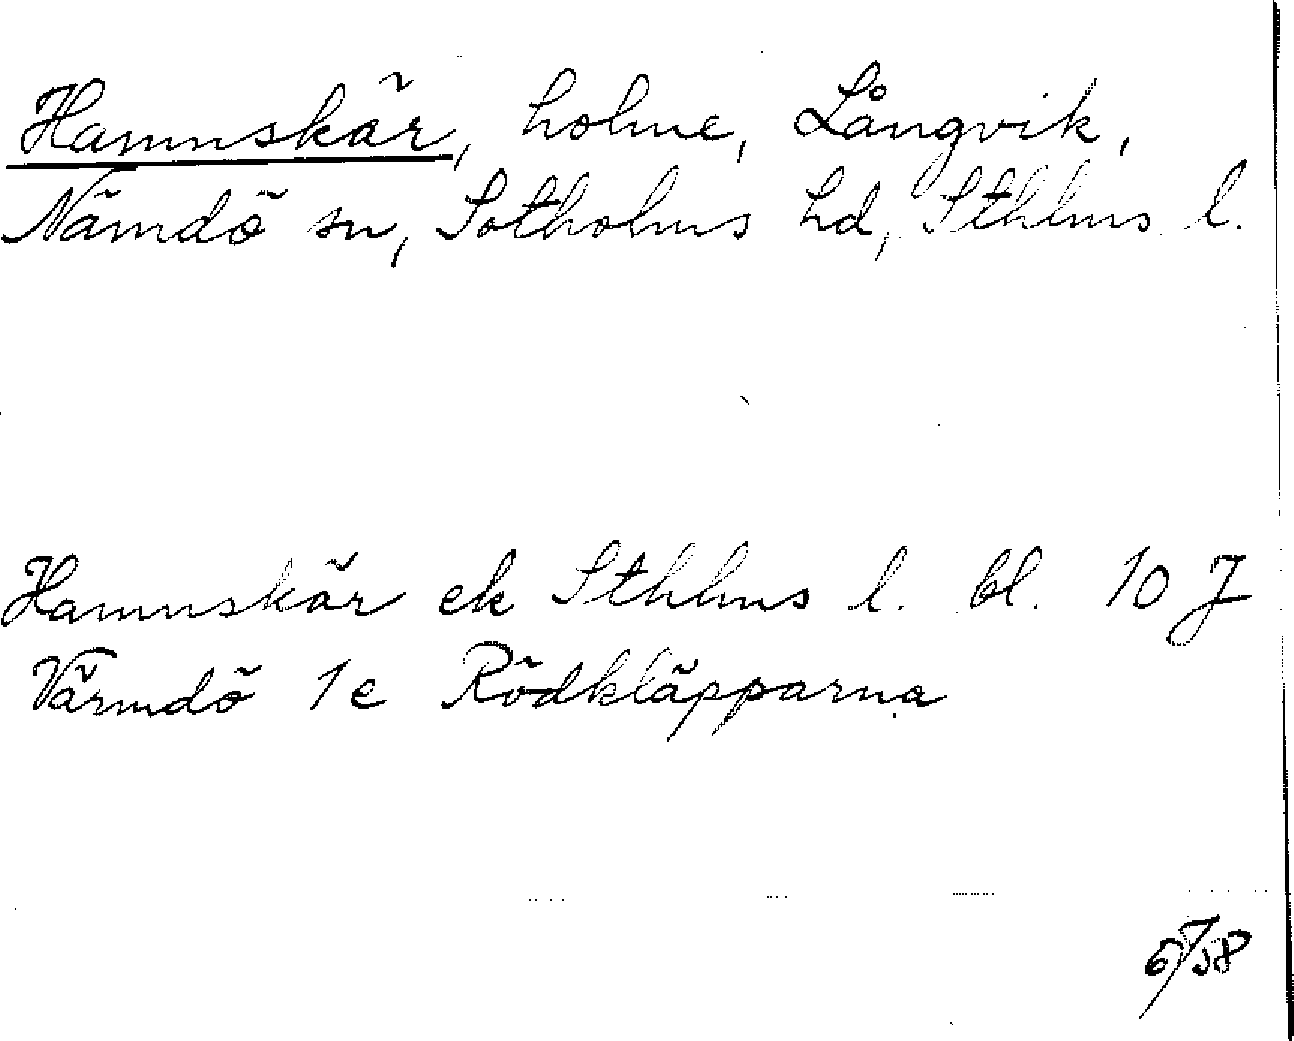 Hamnskär, holme, Långvik,
Nämdö sn, Sotholms hd, Sthlms l.
Hamnskär ek Sthlms l. bl. 10 J
Värmdö 1e Rödkläpparna
6/7 58